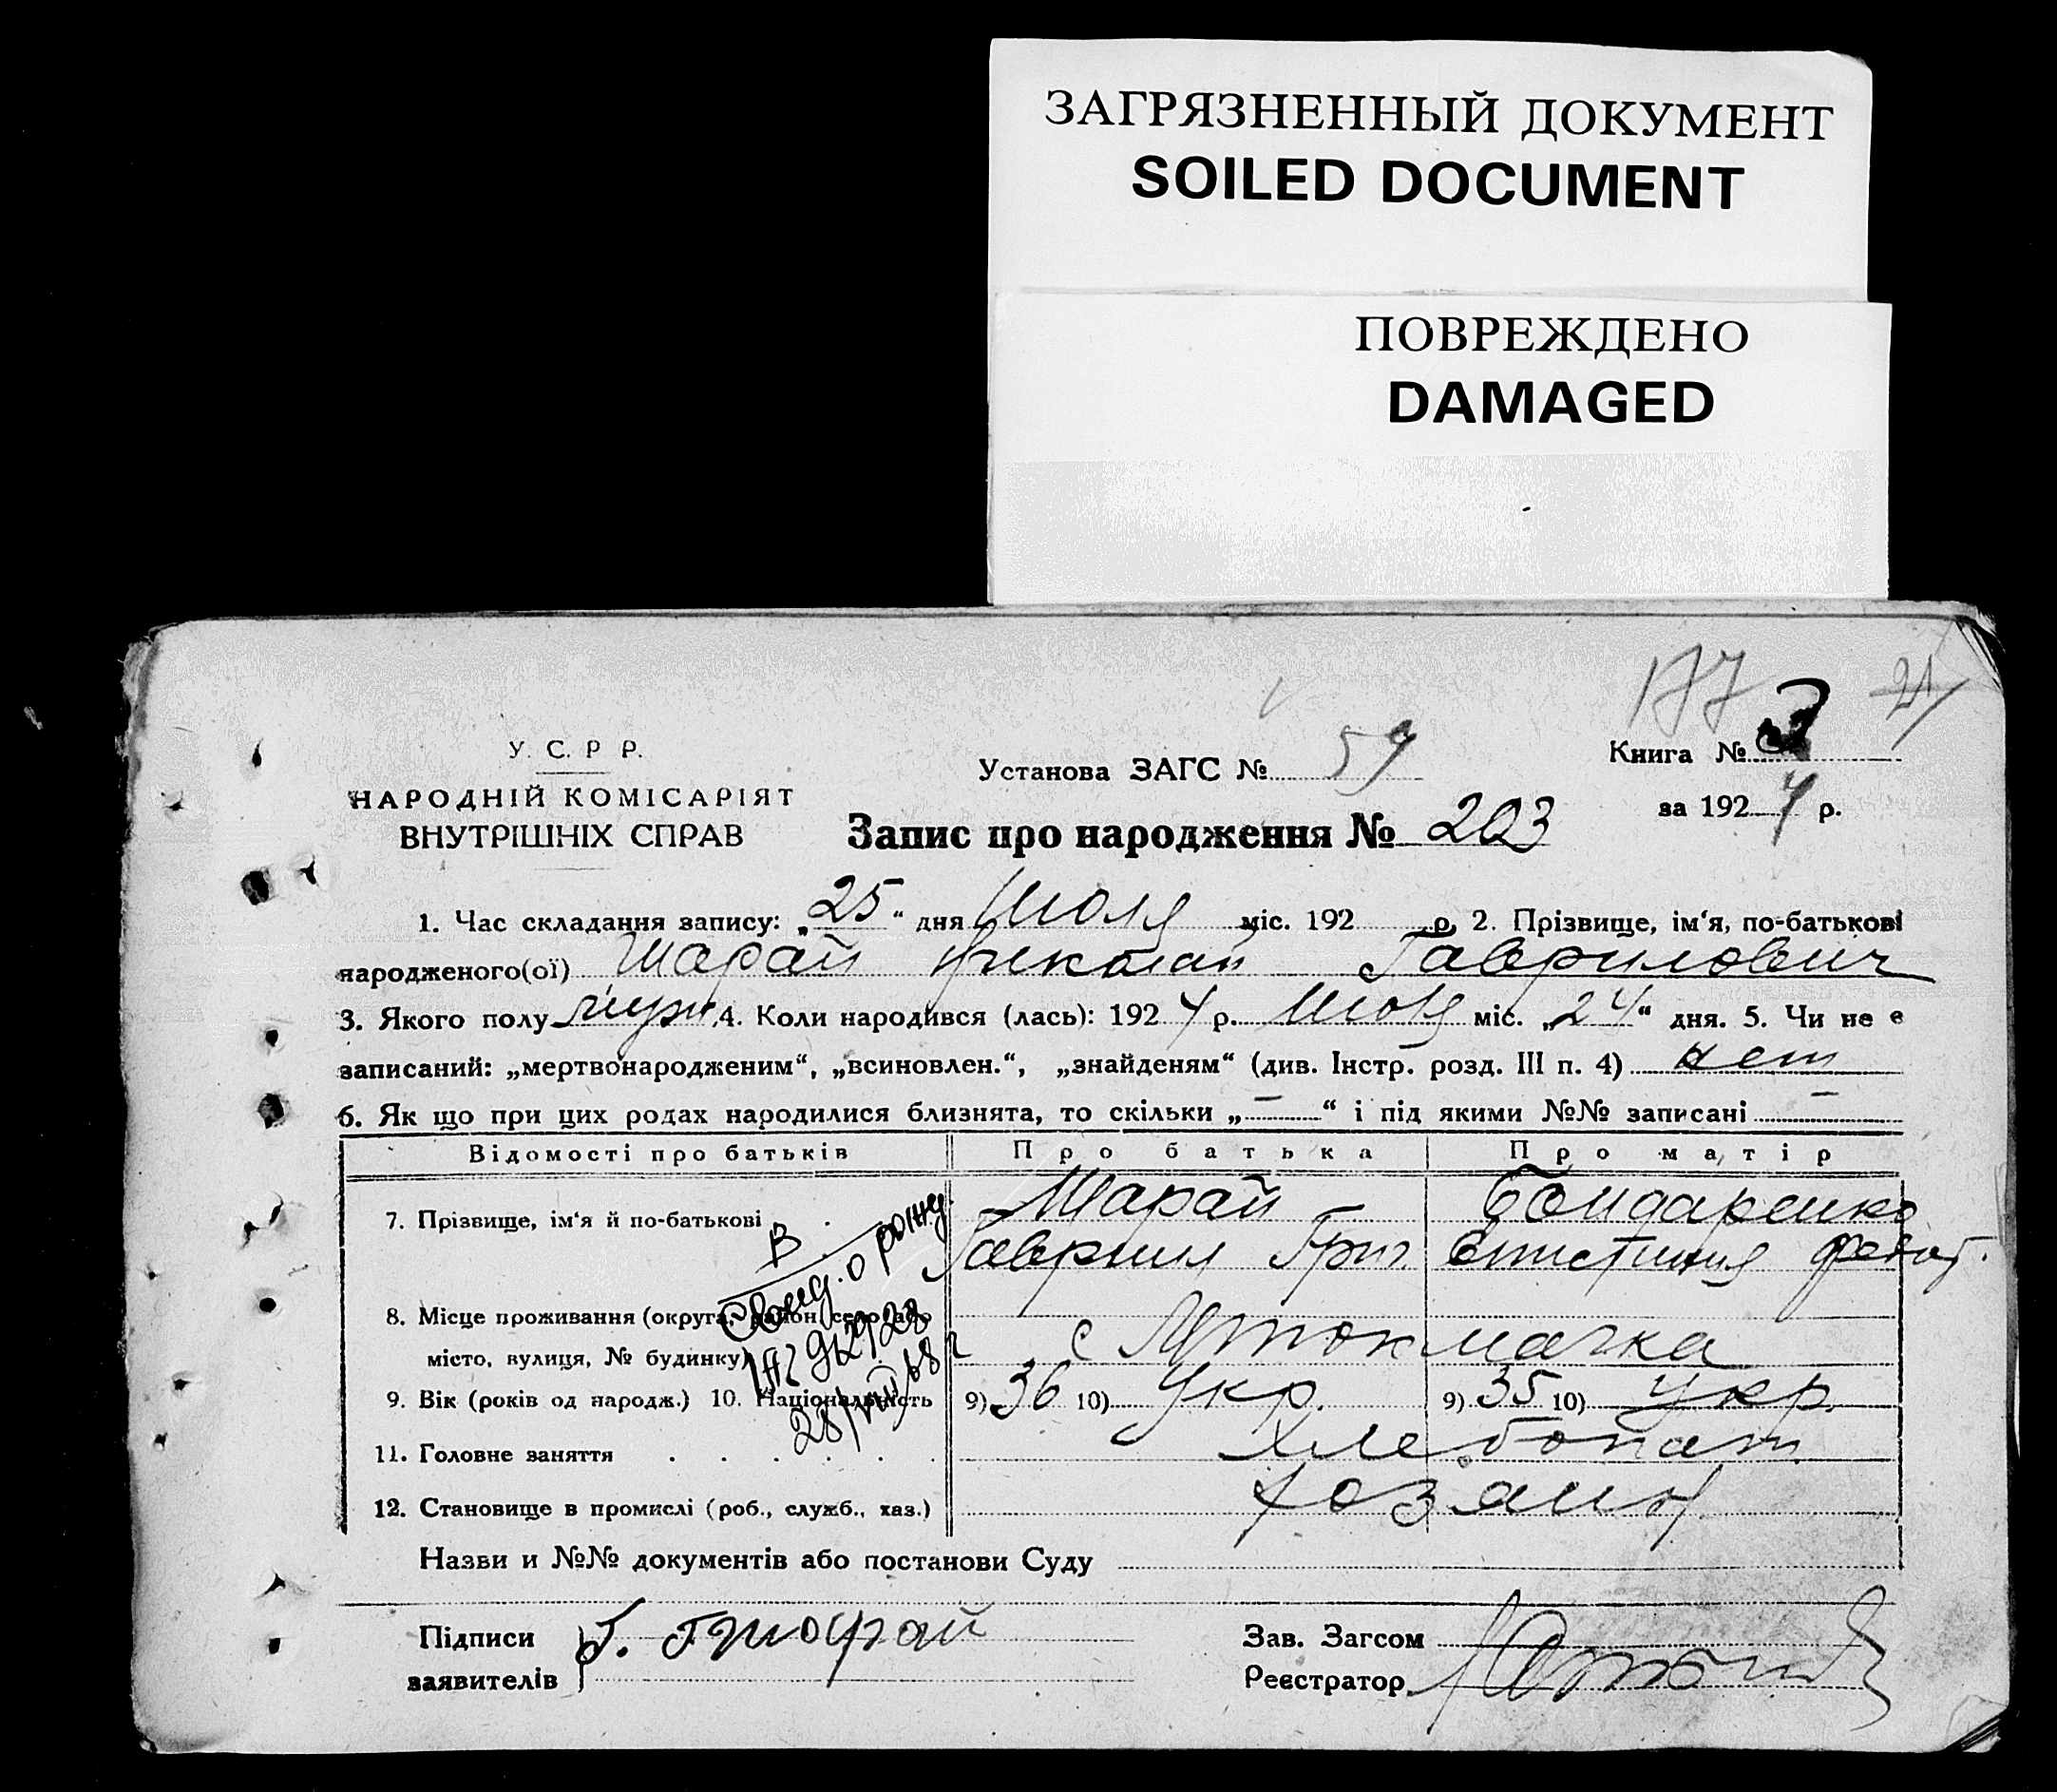 ЗАГРЯЗНЕННЫЙ ДОКУМЕНТ
SOILED DOCUMENT
ПОВРЕЖДЕНО
DAMAGED
177 21
У. С. Р Р.
НАРОДНІЙ КОМІСАРІЯТ
ВНУТРІШНІХ СПРАВ
Установа ЗАГС № 59
Книга № 3
за 1924 р.
Запис про народження № 203
1. Час складання запису: „25“ дня Июля міс. 192 р. 2. Прізвище, ім‘я, по-батькові
народженого(ої) Шарай Николай Гаврилович
3. Якого полу муж. 4. Коли народився (лась): 1924 р. Июля міс. „24“ дня. 5. Чи не є
записаний: „мертвонародженим“, „всиновлен.“, „знайденям“ (див. Інстр. розд. III п. 4) нет
6. Як що при цих родах народилися близнята, то скільки „—“ і під якими №№ записані —
Відомості про батьків Про батька Про матір
7. Прізвище, ім‘я й по-батькові Шарай Бондаренко
Гавриил Григ. Епистиния
8. Місце проживання (округа, район, село або
місто, вулиця, № будинку) с Мтокмачка
9. Вік (років од народж.) 10. Національність 9) 36 10) Укр. 9) 35 10) Укр.
11. Головне заняття Хлебопаш.
12. Становище в промислі (роб., служб., хаз.) Хозяин
В
Свид. о рожд.
28/VIII 68 г
Назви и №№ документів або постанови Суду
Підписи
заявителів Г.
Зав. Загсом
Реєстратор